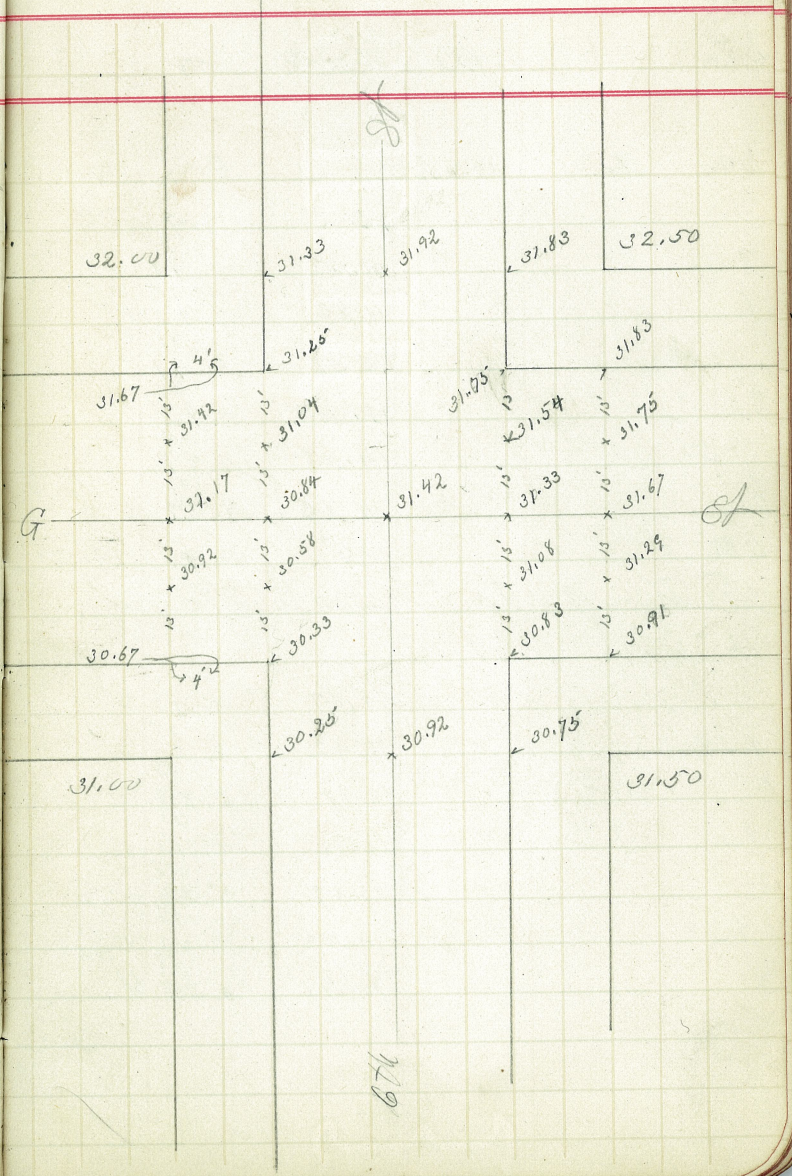 St
32.00
31.33
31.92
31.83
32.50
31.25
31.83
4'
31.67
31.75
13'
31.42
13'
31.04
13'
31.54
13'
31.75
13'
13'
13'
13'
G
31.17
30.84
31.42
31.33
31.67
St
13'
30.92
13'
30.58
13'
31.08
13'
31.29
13'
13'
13'
13'
30.67
4'
30.33
30.83
30.91
30.25
30.92
30.75
31.00
31.50
6th